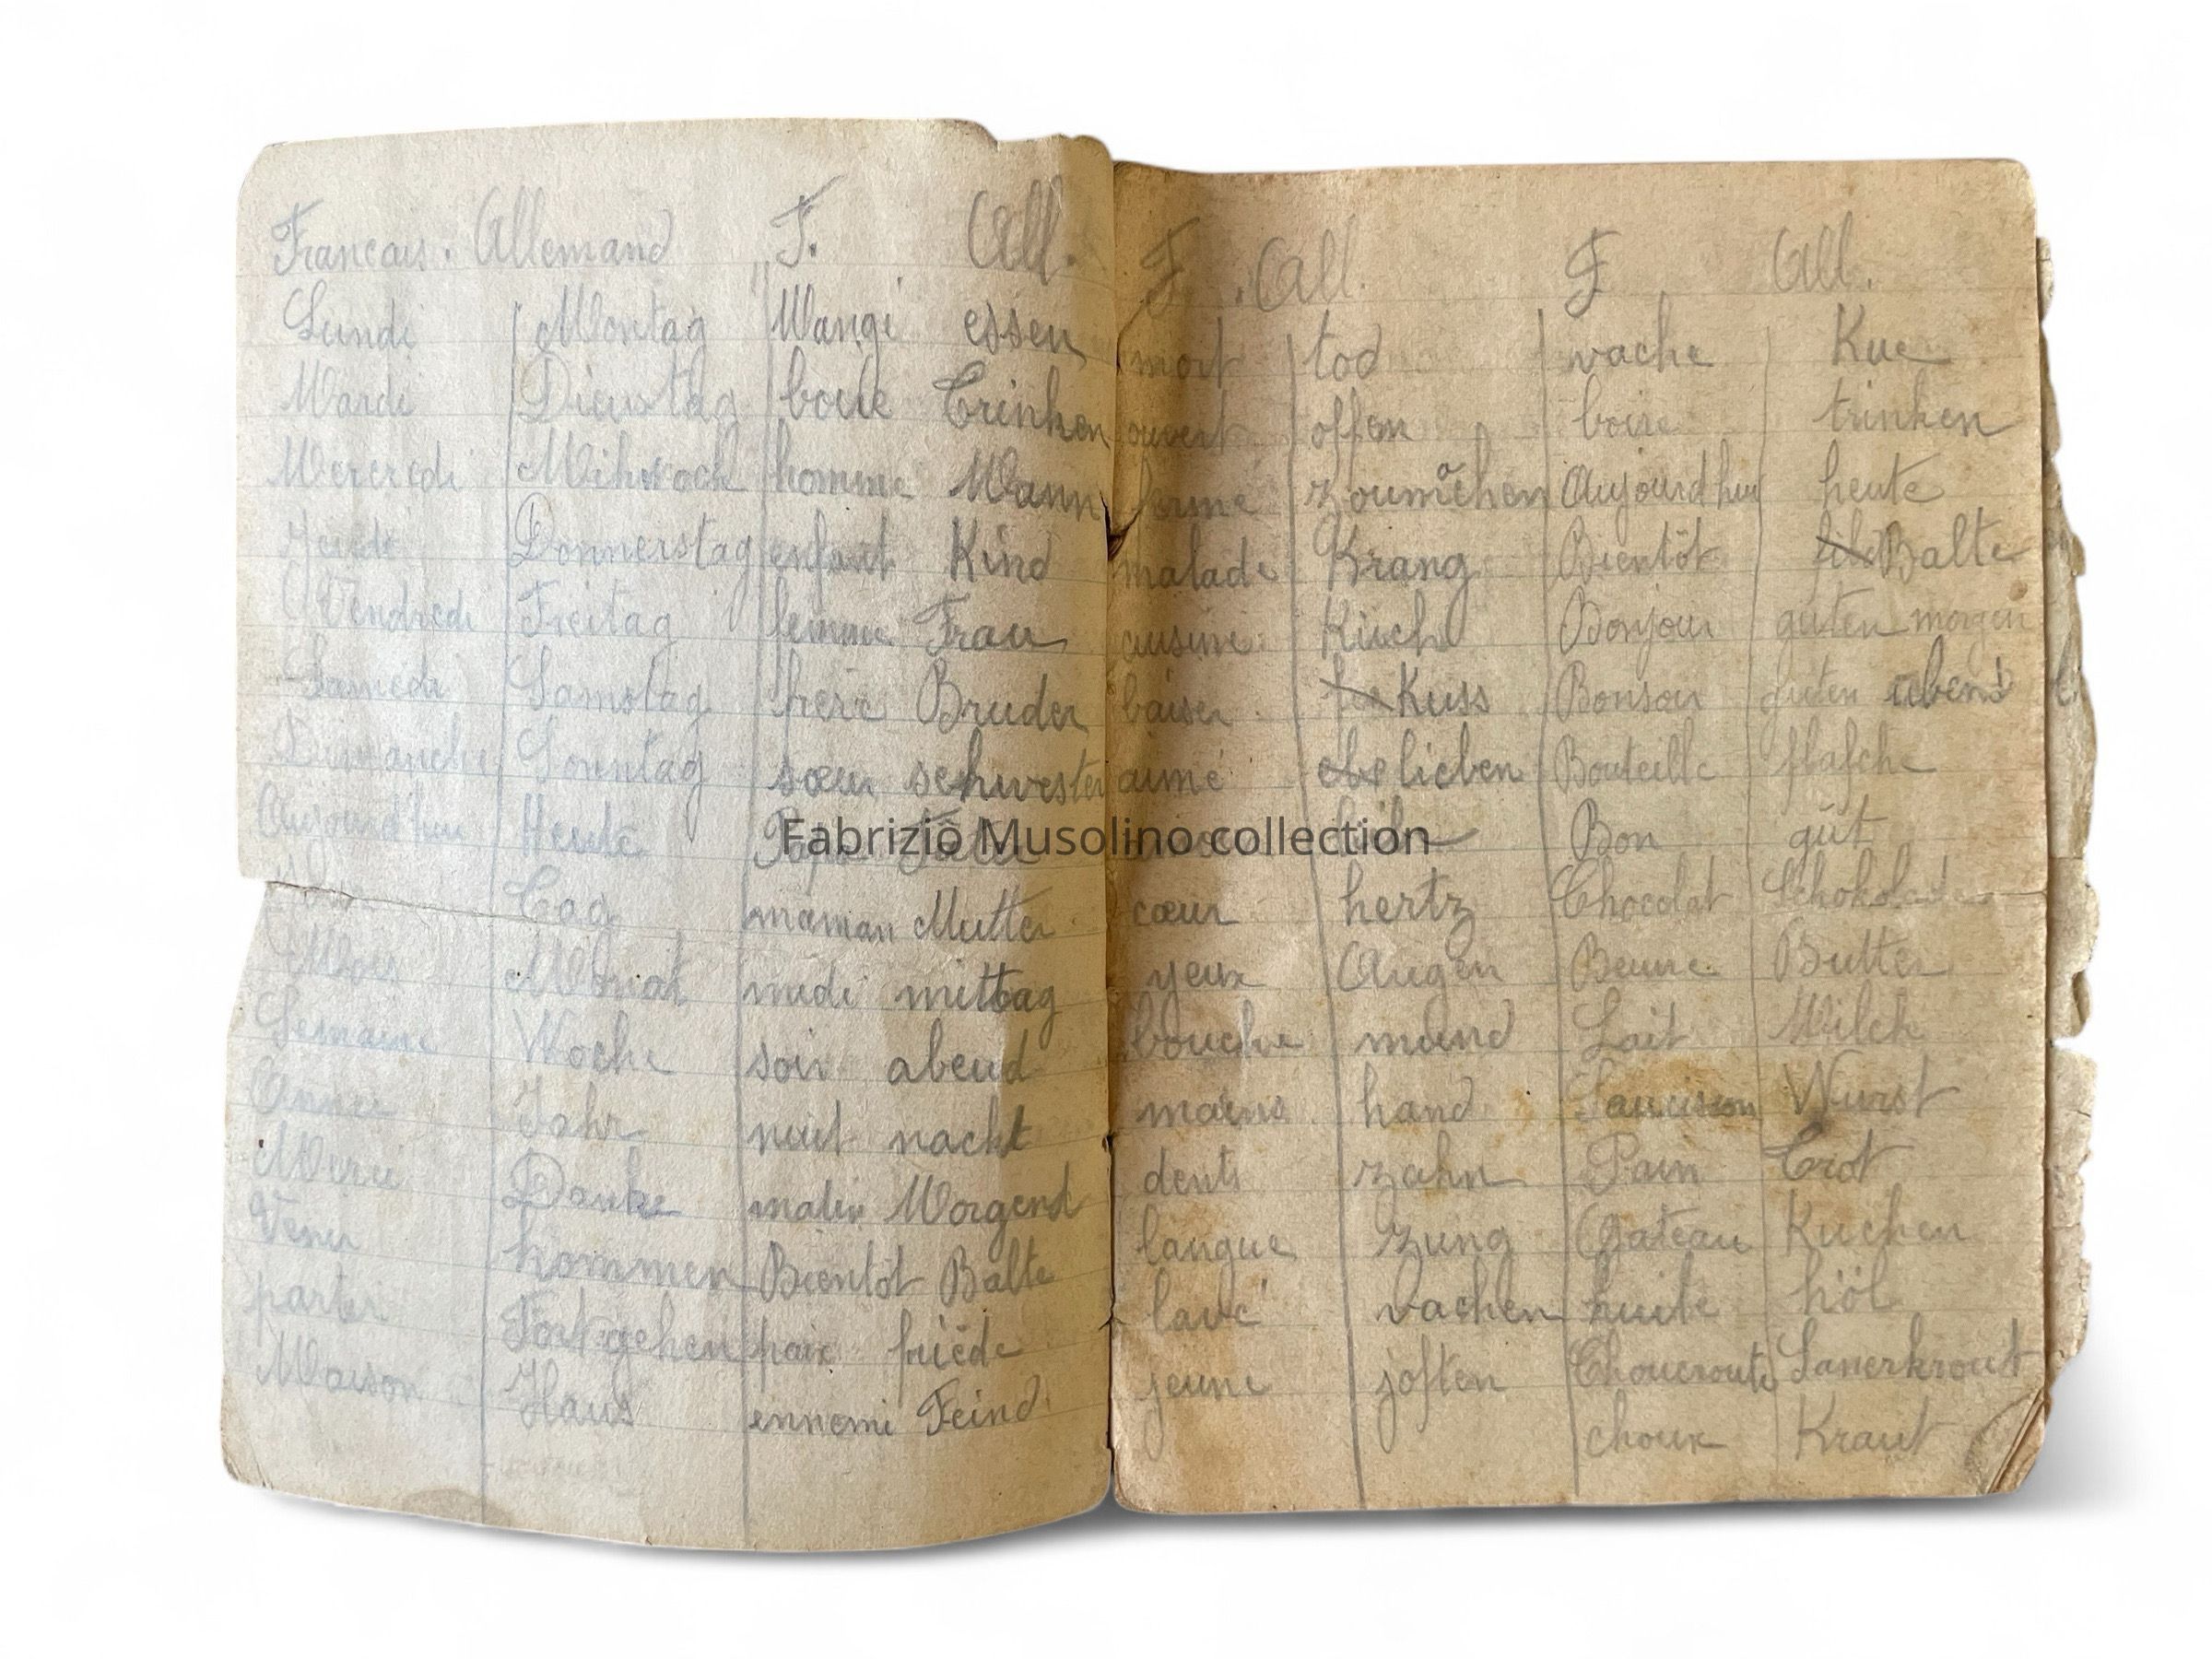 Francais. Allemand F. All.
Lundi Montag Mangé essen
Mardi Dienstag boire Trinken
Mercredi Mihwoch homme Mann
Jeudi Donnerstag enfant Kind
Vendredi Freitag femme Frau
Samedi Samstag frère Bruder
Dimanche Sonntag sœur schwester
Aujourd'hui Heute Papa
Tag maman Mutter
Mois Monat midi mittag
Semaine Woche soir abend
Année Jahr nuit nacht
Merci Danke matin Morgend
Venir kommen Bientôt Balte
partir Fortgehen paix friede
Maison Haus ennemi Feind
F. All. F All.
mort tod vache Kue
ouvert offen boire trinken
fermé zoumachen Aujourd'hui heute
malade Krang Bientôt Balte
cuisine Kuche Bonjour guten morgen
baiser Kuss Bonsoir guten abend
aimé lieben Bouteille flasche
Bon gut
cœur hertz Chocolat Schokolade
yeux Augen Beurre Butter
bouche mund Lait Milch
mains hand Saucisson Wurst
dents zahn Pain Brot
langue zung Gateau Kuchen
lavé vachen huile höl
jeune joften Choucroute Sauerkrout
choux Kraut
Fabrizio Musolino collection